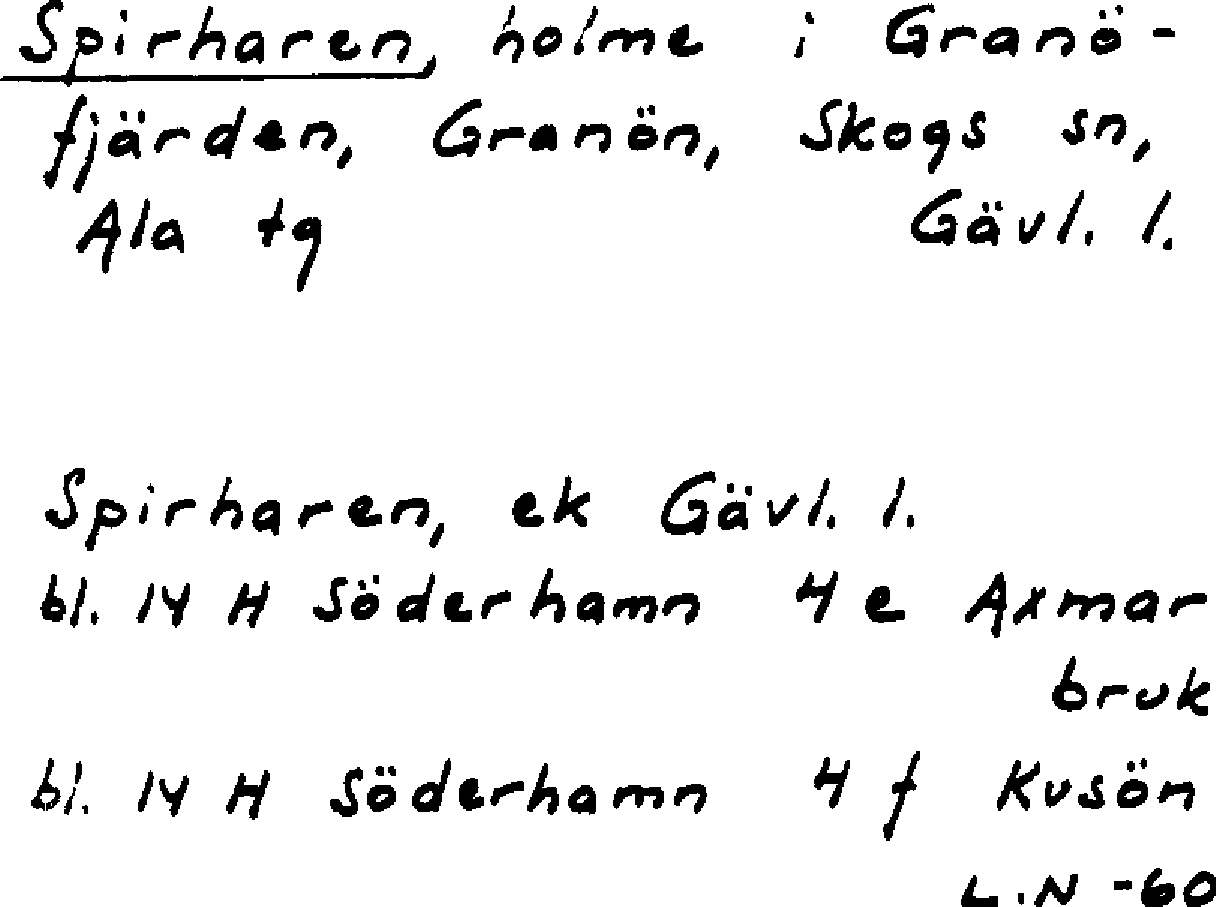 Spirharen, holme i Granö-
fjärden, Granön, Skogs sn,
Ala tg Gävl. l.
Spirharen, ek Gävl. l.
bl. 14 H Söderhamn 4 e Axmar
bruk
bl. 14 H Söderhamn 4 f Kusön
L.N -60